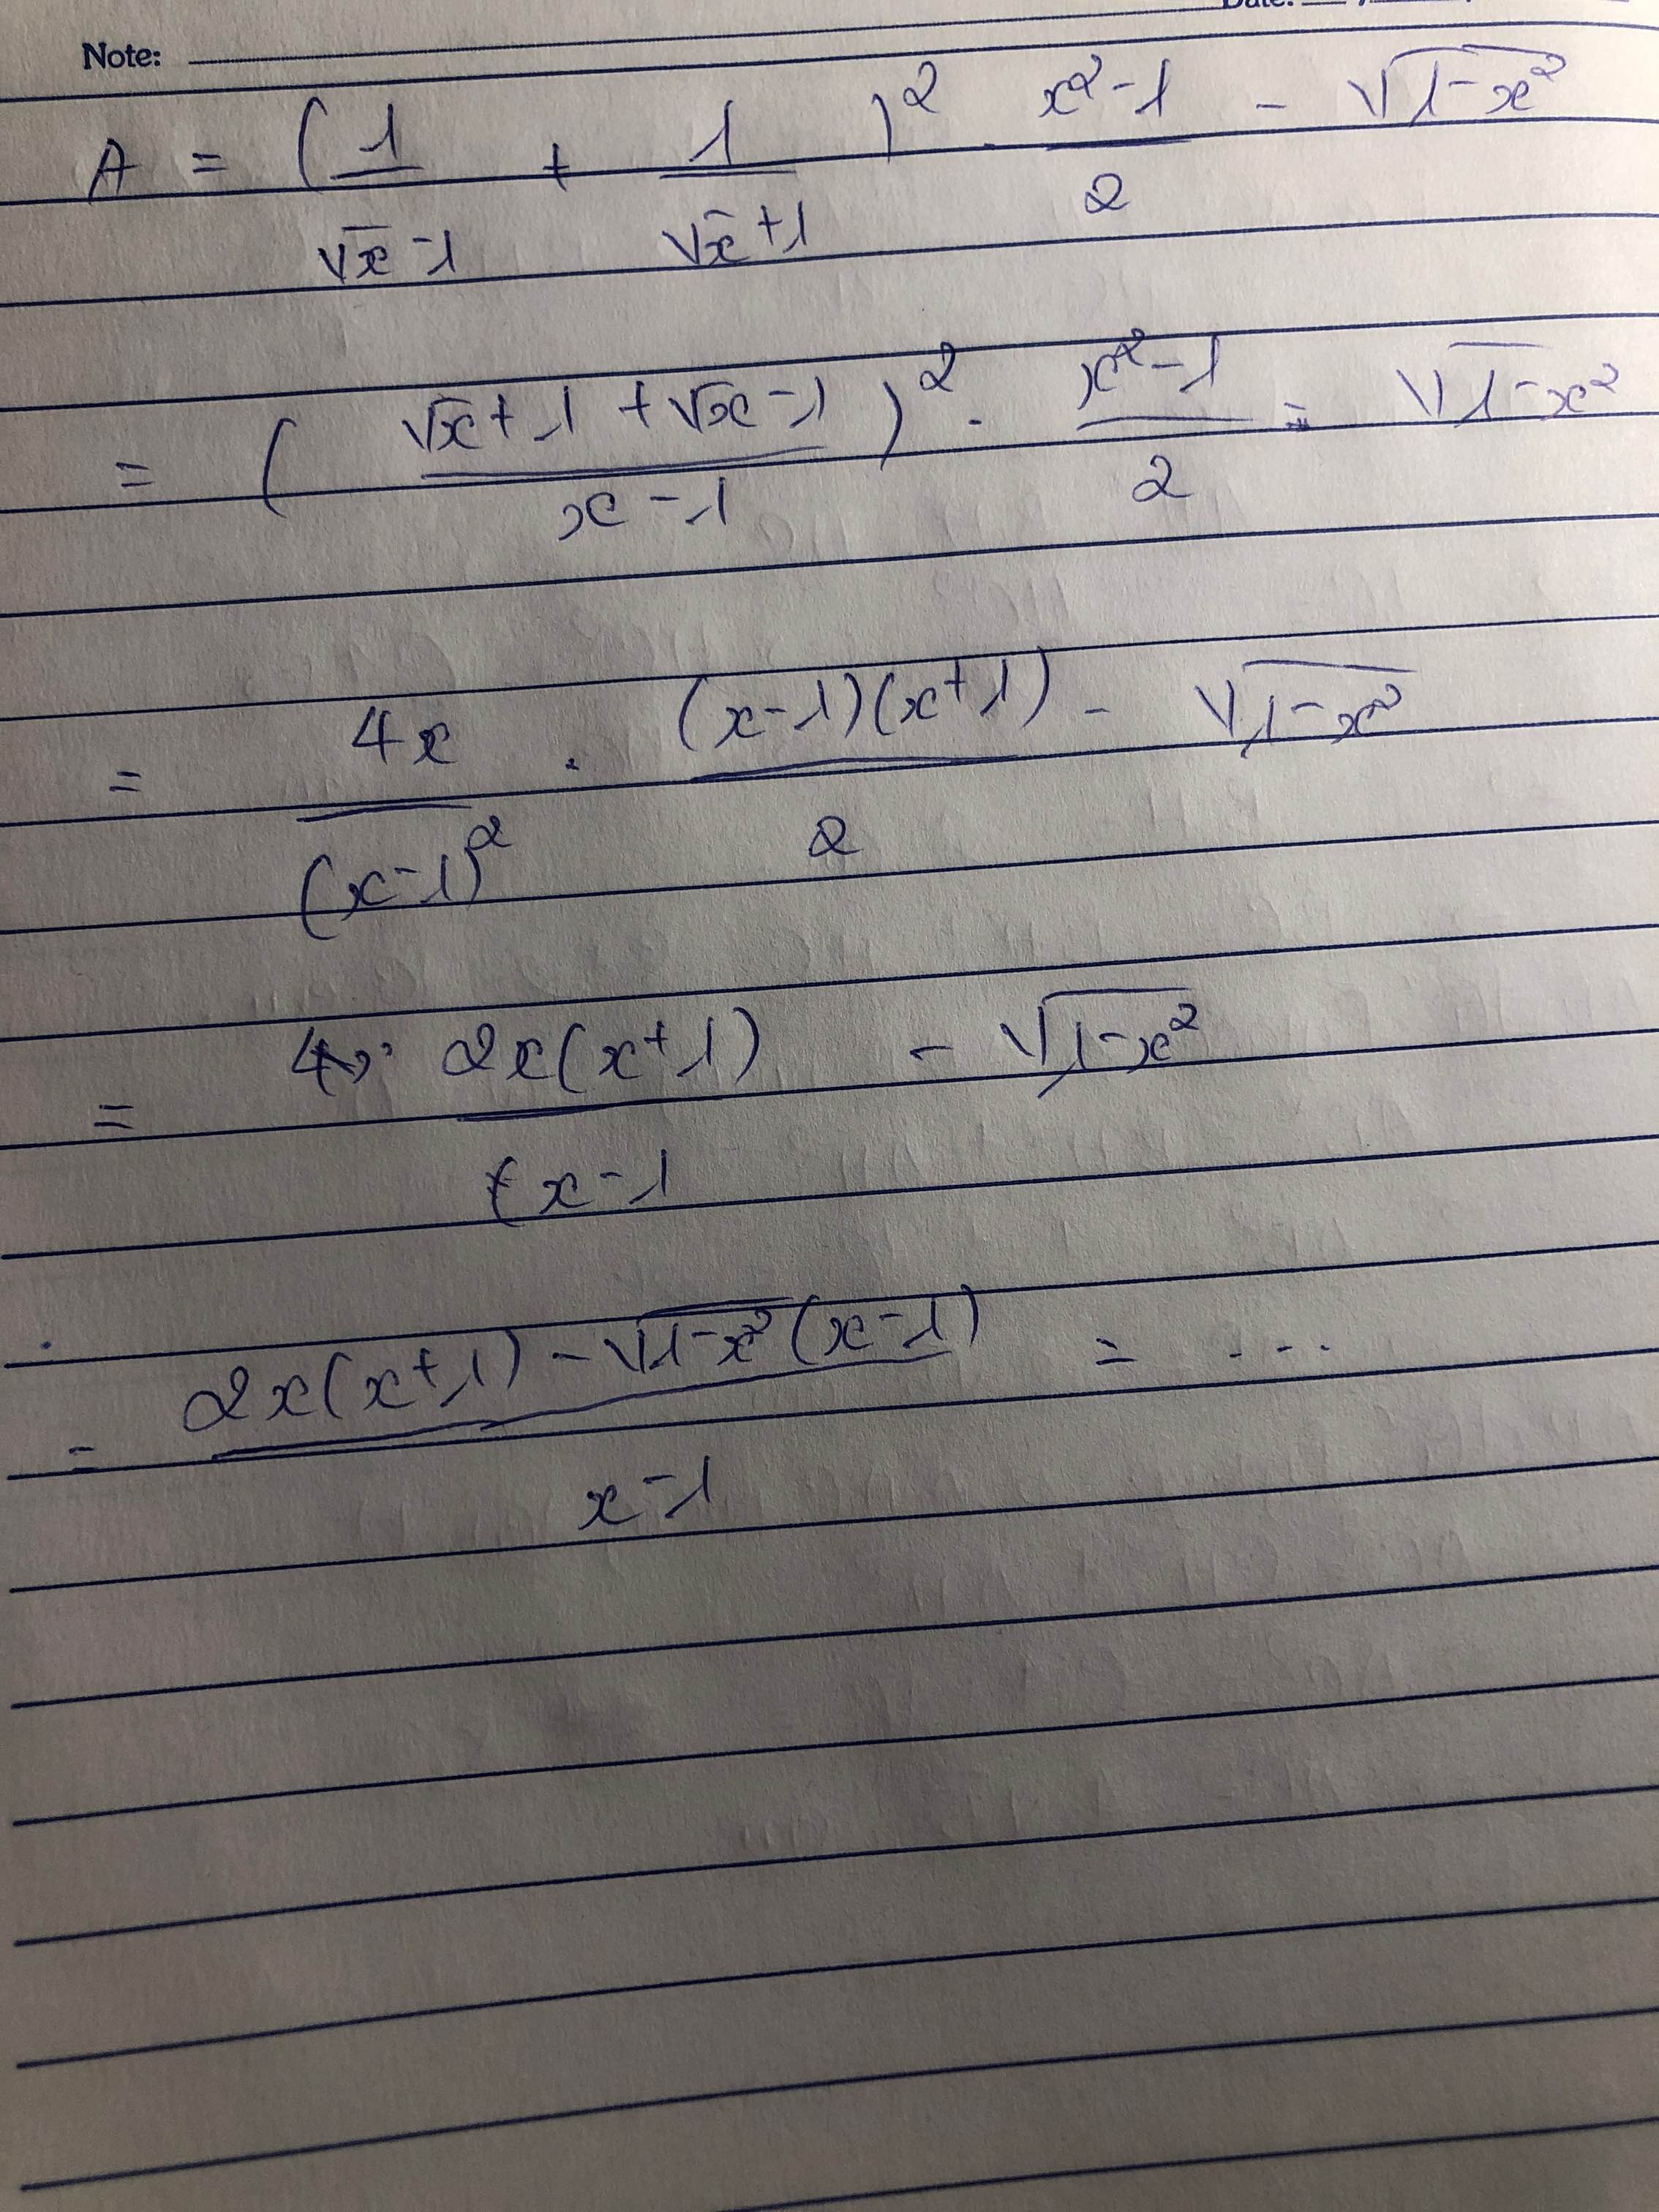 Note:
A = (1/(√x - 1) + 1/(√x + 1))² · (x² - 1)/2 - √(1 - x²)
= ((√x + 1 + √x - 1)/(x - 1))² · (x² - 1)/2 - √(1 - x²)
= 4x/(x - 1)² · (x - 1)(x + 1)/2 - √(1 - x²)
= 2x(x + 1)/(x - 1) - √(1 - x²)
= (2x(x + 1) - √(1 - x²)(x - 1))/(x - 1) = ...